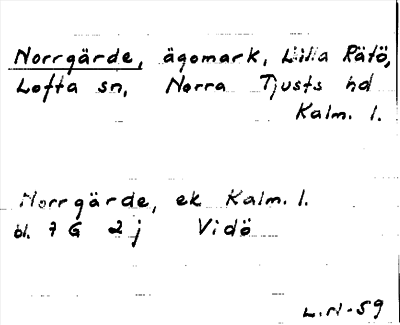 Norrgärde, ägomark, Lilla Rätö,
Lofta sn, Norra Tjusts hd
Kalm. l.
Norrgärde, ek Kalm. l.
bl. 7 G 2 j Vidö
L.N-59